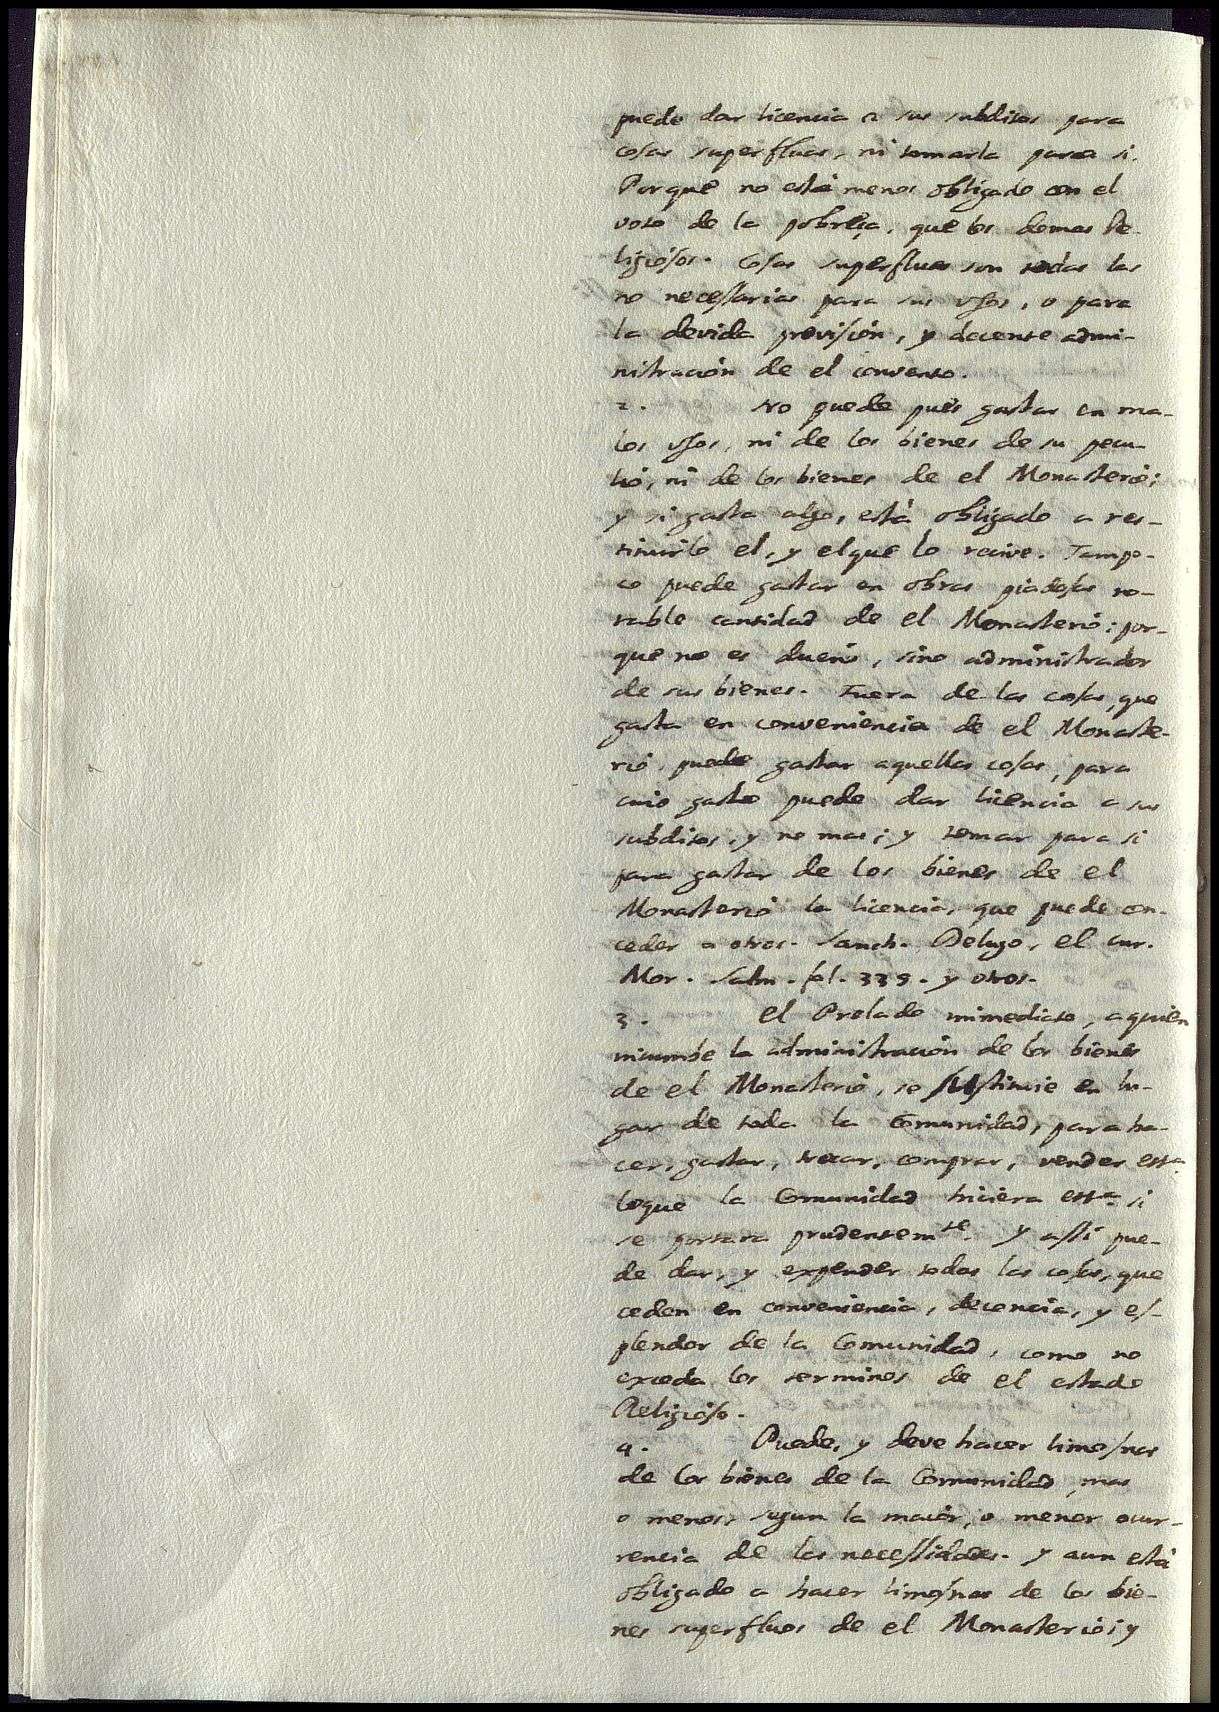 puede dar licencia a sus subditos para
cosas superfluas, ni tomarla para si.
Porque no está menos obligado con el
voto de la pobreça, que los demas Re-
ligiosos. Cosas superfluas son todas las
no necessarias para sus usos, o para
la devida provisión, y decente admi-
nistración de el convento.
2. No puede pues gastar en ma-
los usos, ni de los bienes de su pecu-
lio, ni de los bienes de el Monasterio;
y si gasta algo, está obligado a res-
tituirlo el, y el que lo recive. Tampo-
co puede gastar en obras piadosas no-
table cantidad de el Monasterio: por-
que no es dueño, sino administrador
de sus bienes. Fuera de las cosas, que
gasta en conveniencia de el Monaste-
rio, puede gastar aquellas cosas, para
cuio gasto puede dar licencia a sus
subditos, y no mas; y tomar para si
para gastar de los bienes de el
Monasterio la licencia, que puede con-
ceder a otros. Sanch. Pelizo, el cur.
Mor. Salm. fol. 339. y otros.
3. El Prelado immediato, a quien
incumbe la administración de los bienes
de el Monasterio, se sustituie en lu-
gar de toda la Comunidad, para ha-
cer, gastar, trocar, comprar, vender etta.
loque la Comunidad hiciera etta. si
se portara prudentemte. y assi pue-
de dar, y expender todas las cosas, que
ceden en conveniencia, decencia, y es-
plendor de la Comunidad, como no
exceda los terminos de el estado
Religioso.
4. Puede, y deve hacer limosnas
de los biénes de la Comunidad, mas
o menos, segun la maiór, o menor ocur-
rencia de las necessidades. y aun está
obligado a hacer limosnas de los bie-
nes superfluos de el Monasterio; y